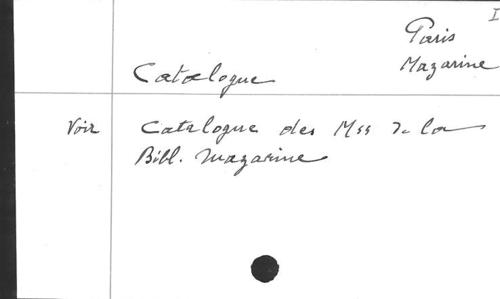 I
Paris
Mazarine
Catalogue
Voir Catalogue des Mss de la
Bibl. Mazarine